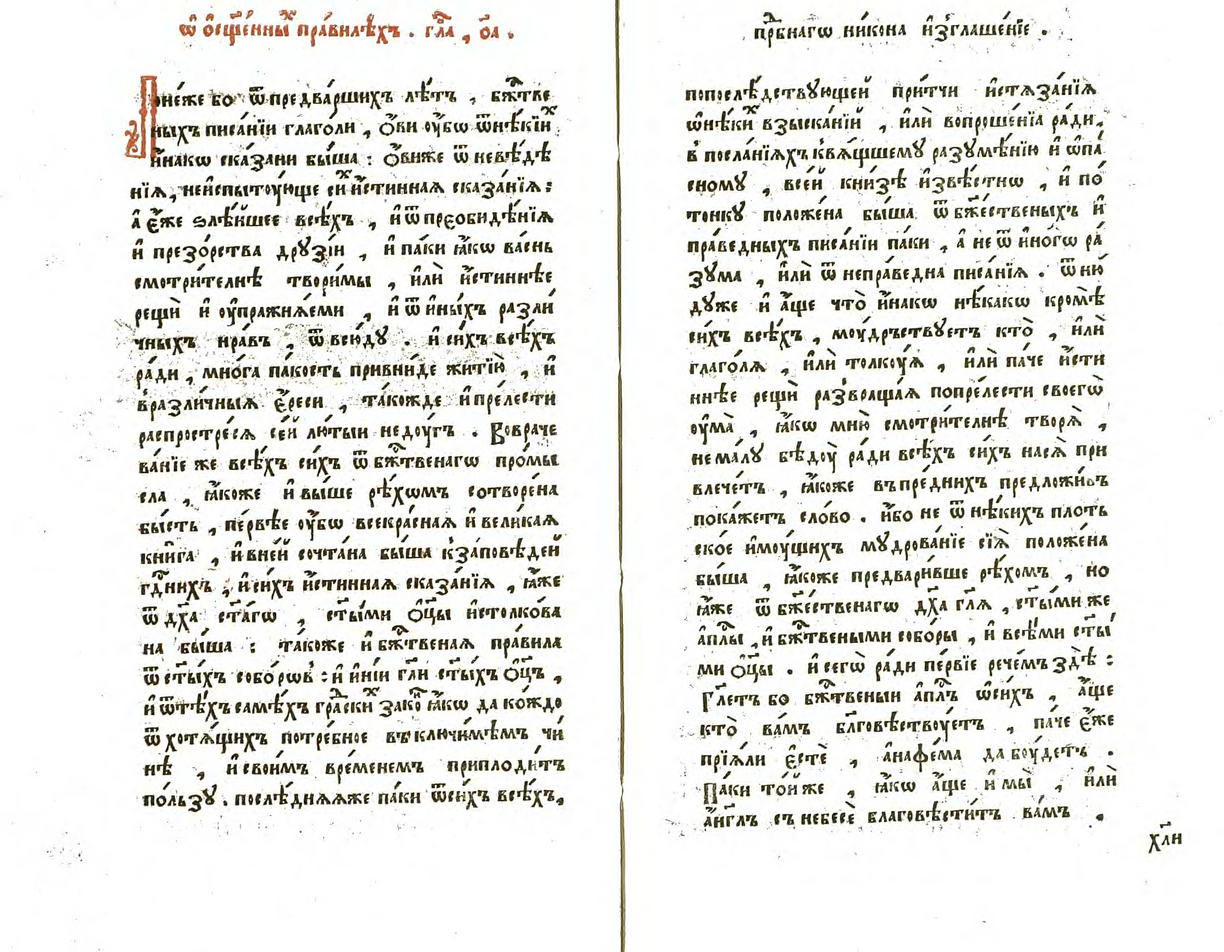 ѿ ѻсщ҃е́нныⷯ пра́вилѣхъ . гл҃а , о҃а .
Поне́же бо ѿ предва́ршихъ лѣ́тъ , бж҃тве
ныхъ писа́нїи глаго́ли , ѻ҆́ви ᲂу҆́бѡ ѿ нѣ́кїиⷯ
и҆́накѡ ска́зани бы́ша : ѻ҆́виже ѿ невѣ́дѣ
нїѧ , неи҆спытᲂу́юще сиⷯ и҆́стинная сказа́нїя :
а҆ є҆́же ѕлѣ́йшее всѣ́хъ , и҆ ѿ преобидѣ́нїя
и҆ презо́рства дрꙋзі́и , и҆ па́ки ꙗ҆́кѡ ва́снь
смотри́телнѣ твори́мы , и҆лѝ и҆́стиннѣе
рещѝ и҆ ᲂу҆пражнѧ́еми , и҆ ѿ и҆ны́хъ разли́
чныхъ нра́въ , ѿ всю́дꙋ . и҆ си́хъ всѣ́хъ
ра́ди , мно́га па́кость привни́де житїю̀ , и҆
в разли́чныѧ є҆́реси , та́кожде и҆ пре́лести
распростре́сѧ се́й лю́тыи недᲂу́гъ . Во враче
ва́нїе же всѣ́хъ си́хъ ѿ бж҃твенагѡ про́мы
сла , ꙗ҆́коже и҆ вы́ше рѣ́хѡмъ сотворе́на
бы́сть , пе́рвѣе ᲂу҆́бѡ всекра́сная и҆ вели́кая
кни́га , и҆ в не́й сочта́на бы́ша к҆ за́повѣдей
гд҃нихъ , и҆ си́хъ и҆́стинная сказа́нїѧ , ꙗ҆́же
ѿ дх҃а ст҃а́гѡ , ст҃ы́ми ѻ҆ц҃ы и҆столко́ва
на бы́ша : та́коже и҆ бж҃твеная пра́вила
ѿ ст҃ы́хъ собо́рѡвъ : и҆ и҆ні́и гл҃и ст҃ы́хъ ѻ҆ц҃ъ ,
и҆ ѿ тѣ́хъ самѣ́хъ гра́дски зако́н ꙗ҆́кѡ да ко́ждо
ѿ хотѧ́щихъ потре́бное въ ключи́мѣмъ чи́
нѣ , и҆ свои́мъ вре́менемъ приплоди́тъ
по́льзꙋ . послѣ́днѧѧже па́ки ѿ си́хъ всѣ́хъ ,
прⷣбнагѡ ни́кона и҆зглаше́нїе .
по послѣ́дствꙋющей при́тчи и҆стѧза́нїѧ
ѿ нѣ́киⷯ взыска́ній , и҆лѝ вопроше́нїѧ ра́ди ,
в посла́нїѧхъ к вѧ́щшемꙋ разꙋмѣ́нїю и҆ ѡ҆па́
сномꙋ , все́й кни́зѣ и҆звѣ́стнѡ , и҆ по́
тонкꙋ положе́на бы́ша ѿ бж҃е́ственыхъ и҆
пра́ведныхъ писа́нїи па́ки , а҆ не ѿ и҆но́гѡ ра́
зꙋма , и҆лѝ ѿ непра́ведна писа́нїѧ . ѿ ню́
дꙋже и҆ а҆́ще что̀ и҆́накѡ нѣ́какѡ кро́мѣ
си́хъ всѣ́хъ , мᲂу́дръствꙋетъ кто̀ , и҆лѝ
глаго́лѧ , и҆лѝ толкᲂу́ѧ , и҆лѝ па́че и҆́сти
ннѣе рещѝ развраща́ѧ по пре́лести своегѡ̀
ᲂу҆ма̀ , ꙗ҆́кѡ мню̀ смотри́телнѣ творѧ̀ ,
не ма́лꙋ бѣ́дᲂу ра́ди всѣ́хъ си́хъ на сѧ̀ при
влече́тъ , ꙗ҆́коже въ пре́днихъ предложи́въ
пока́жетъ сло́во . и҆́бо не ѿ нѣ́кихъ пло́ть
ское и҆мᲂу́щихъ мꙋдрова́нїе сїѧ̀ положе́на
бы́ша , ꙗ҆́коже предвари́вше рѣ́хомъ , но
ꙗ҆́же ѿ бж҃е́ственагѡ дх҃а гл҃ѧ , ст҃ы́ми же
а҆пⷭ҇лы , и҆ бж҃твеными собо́ры , и҆ всѣ́ми ст҃ы́
ми ѻ҆ц҃ы . и҆ сегѡ̀ ра́ди пе́рвїе рече́мъ здѣ̀ :
Гл҃етъ бо бж҃твеныи а҆пⷭ҇лъ ѡ҆ си́хъ , а҆́ще
кто̀ ва́мъ бл҃говѣствᲂу́етъ , па́че є҆́же
прїѧ́ли є҆стѐ , а҆на́фема да бᲂу́детъ .
Па́ки то́й же , ꙗ҆́кѡ а҆́ще и҆ мы̀ , и҆лѝ
а҆́нгл҃ъ съ небесѐ благовѣсти́тъ ва́мъ .
хл҃и